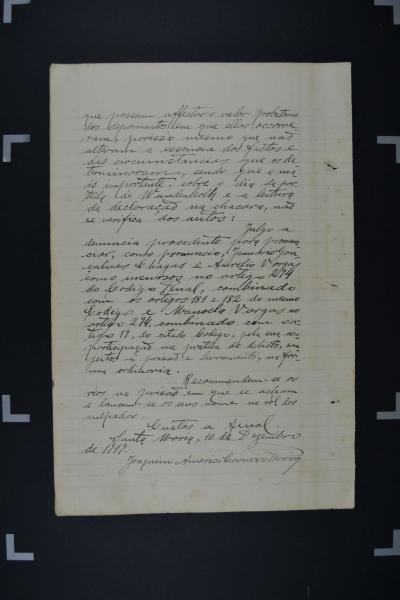 que possam affectar o valor probatorio
dos depoimentos em que elles occorre-
ram, porisso mesmo que não
alteram a essencia dos factos e
das circumstancias que os de-
terminaram, sendo que a ma-
is importante, sobre o dia da par-
tida de e a leitura
da declaração na chacara, não
se verifica dos autos:
Julgo a
denuncia procedente para pronun-
ciar, como pronuncio, Gon-
çalves Chagas e Aurelio Vargas
como incursos no artigo 294
do Codigo Penal, combinado
com os artigos 181 e 182 do mesmo
Codigo e Manoela Vargas no
artigo 294, combinado com o ar-
tigo 17, do citado Codigo, pela sua
participação na pratica do delicto, su-
jeitos á prisão e livramento, na fór-
ma ordinaria.
Recommendem-se os
réos na prisão em que se acham
e lancem-se os seus nomes no rol dos
culpados.
Custas a final.
Santa Maria, 10 de Dezembro
de
Joaquim Americo Carneiro